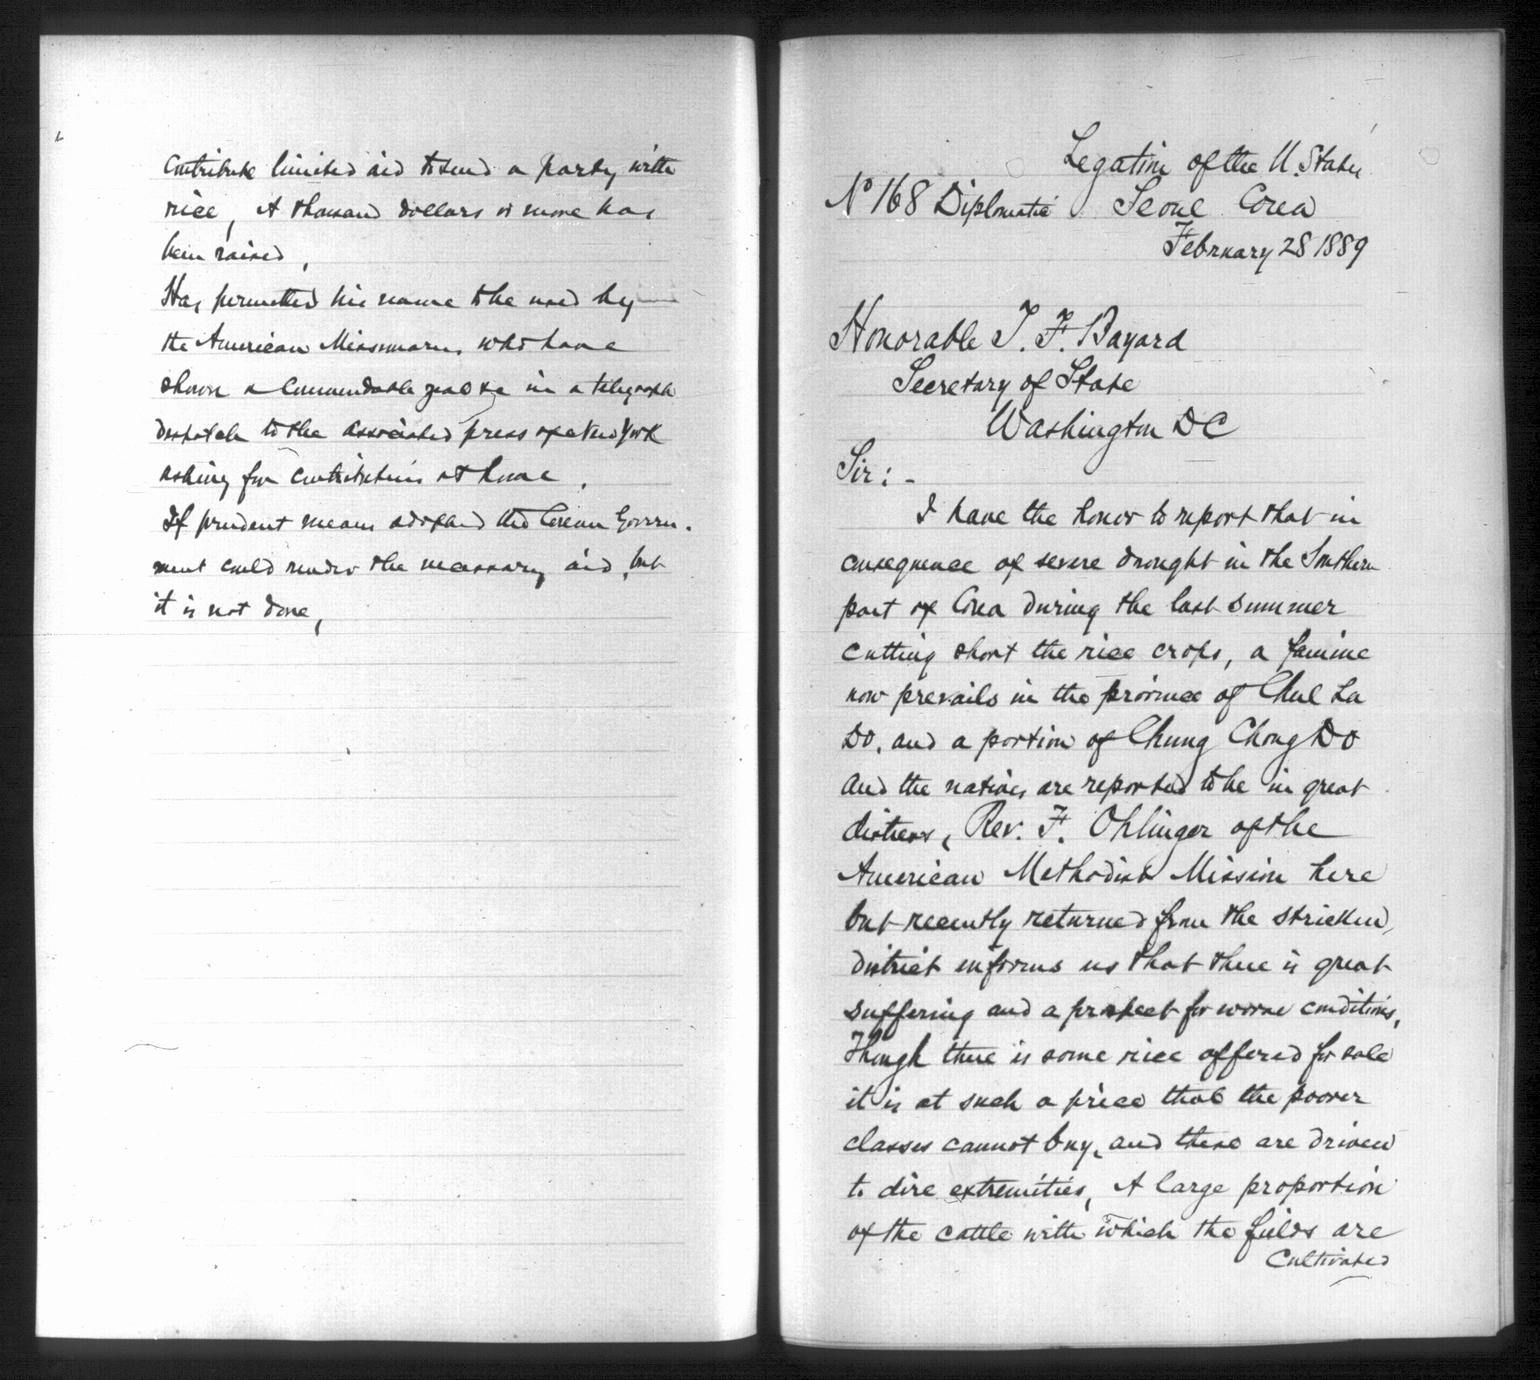 Contribute limited aid to send a party with
rice, A thousand dollars or more has
been raised,
Has permitted his name to be used by
the American Missionaries who have
shown a commendable zeal in a telegraph
despatch to the associated press of New York
asking for contributions at home,
If prudent means adopted the Corean Govern-
ment could render the necessary aid, but
it is not done,
Legation of the U. States
No 168 Diplomatic Seoul Corea
February 28 1889
Honorable T. F. Bayard
Secretary of State
Washington DC
Sir:-
I have the honor to report that in
consequence of severe drought in the Southern
part of Corea during the last summer
cutting short the rice crops, a famine
now prevails in the province of Chul La
Do, and a portion of Chung Chong Do
and the natives are reported to be in great
distress, Rev. F. Ohlinger of the
American Methodist Mission here
but recently returned from the stricken
district informs us that there is great
suffering and a prospect for worse conditions,
Though there is some rice offered for sale
it is at such a price that the poorer
classes cannot buy, and these are driven
to dire extremities, A large proportion
of the cattle with which the fields are
Cultivated